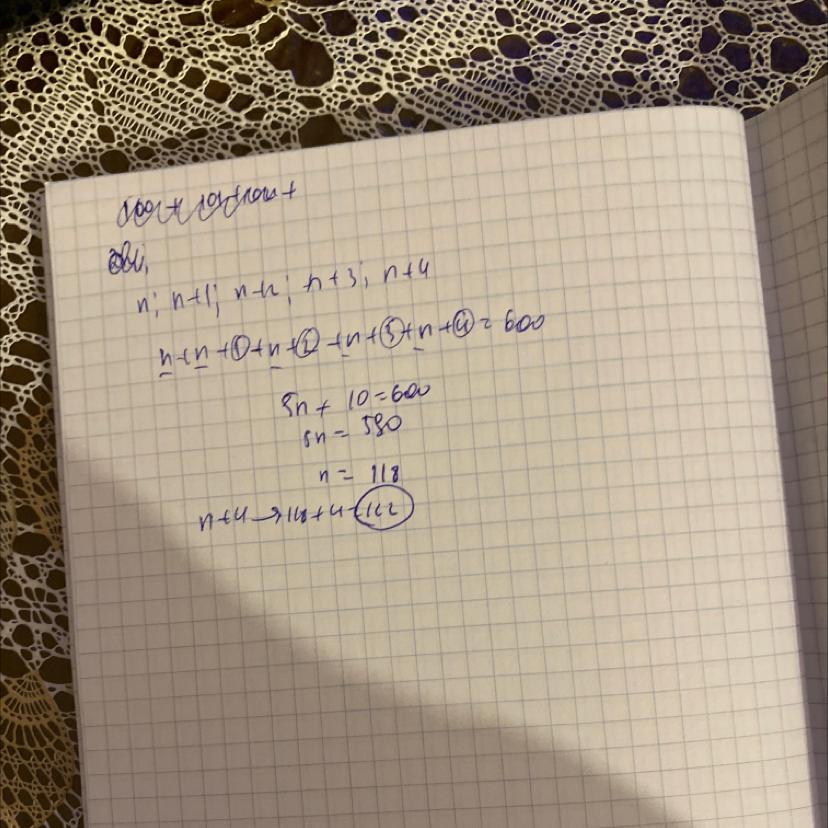 n; n+1; n+2; n+3; n+4
n+n+1+n+2+n+3+n+4=600
5n+10=600
5n=590
n=118
n+4→118+4=122